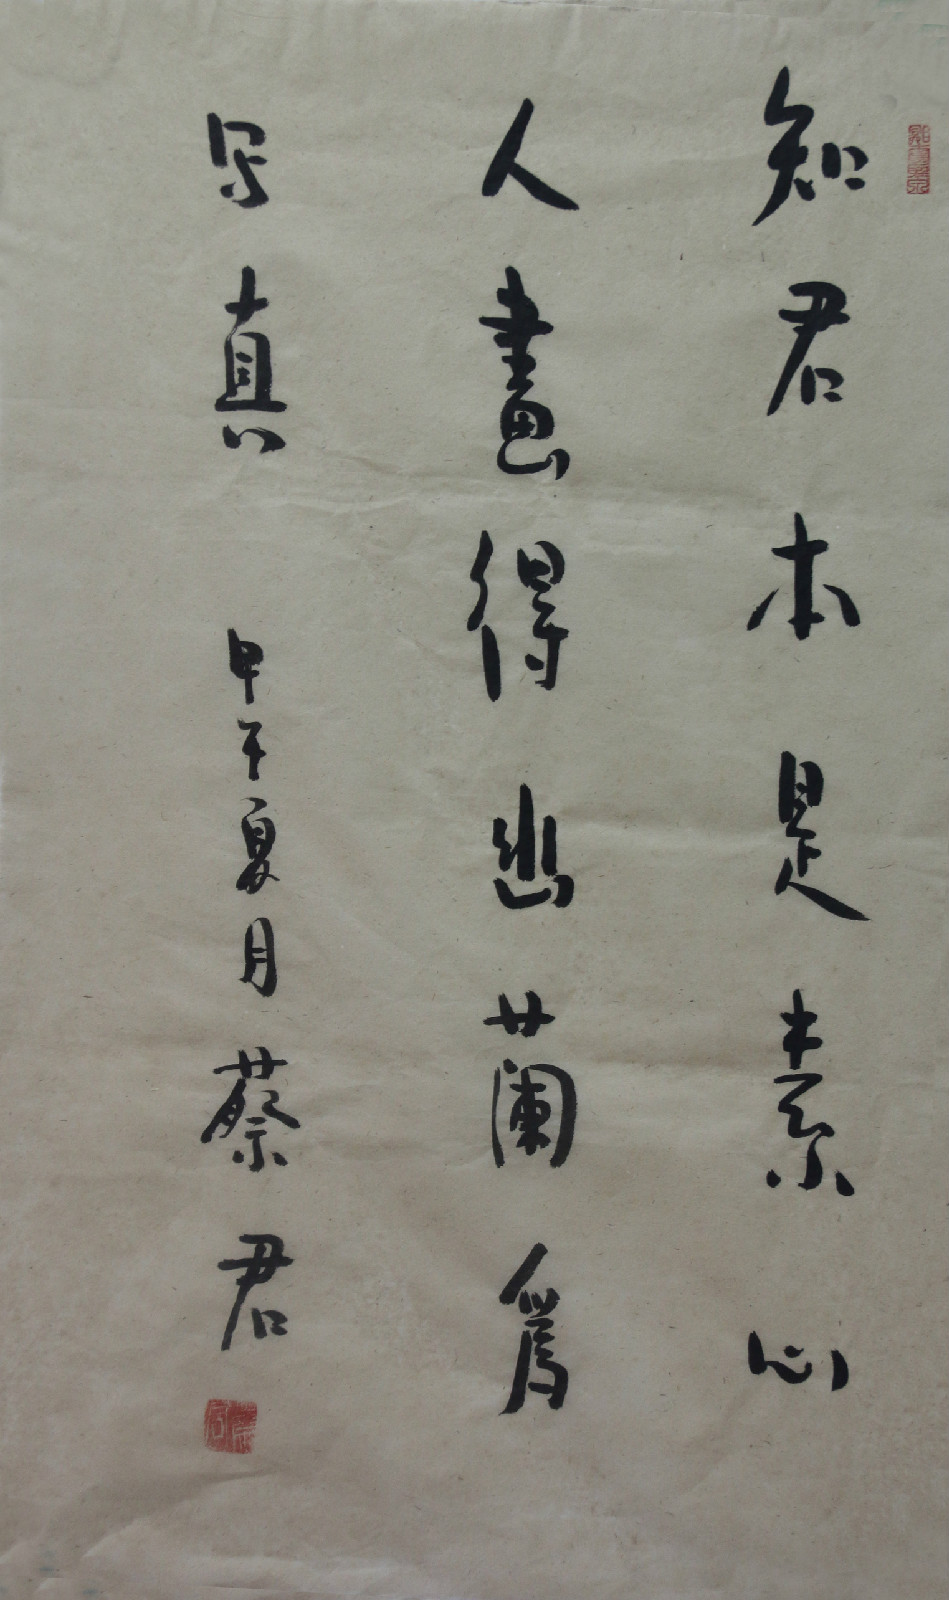 知君本是素心
人畫得幽蘭爲
写真 甲午夏月蔡君